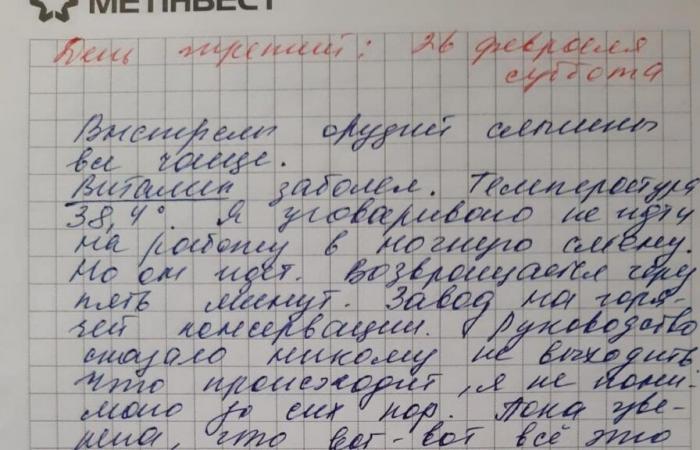 МЕТІНВЕСТ
День третий: 26 февраля
суббота
Выстрелы орудий слышны
все чаще.
Виталик заболел. Температура
38,4°. Я уговариваю не идти
на работу в ночную смену.
Но он идет. Возвращается через
пять минут. Завод на горя-
чей консервации. Руководство
сказало никому не выходить.
Что происходит, я не пони-
маю до сих пор. Пока уве-
рена, что вот-вот всё это